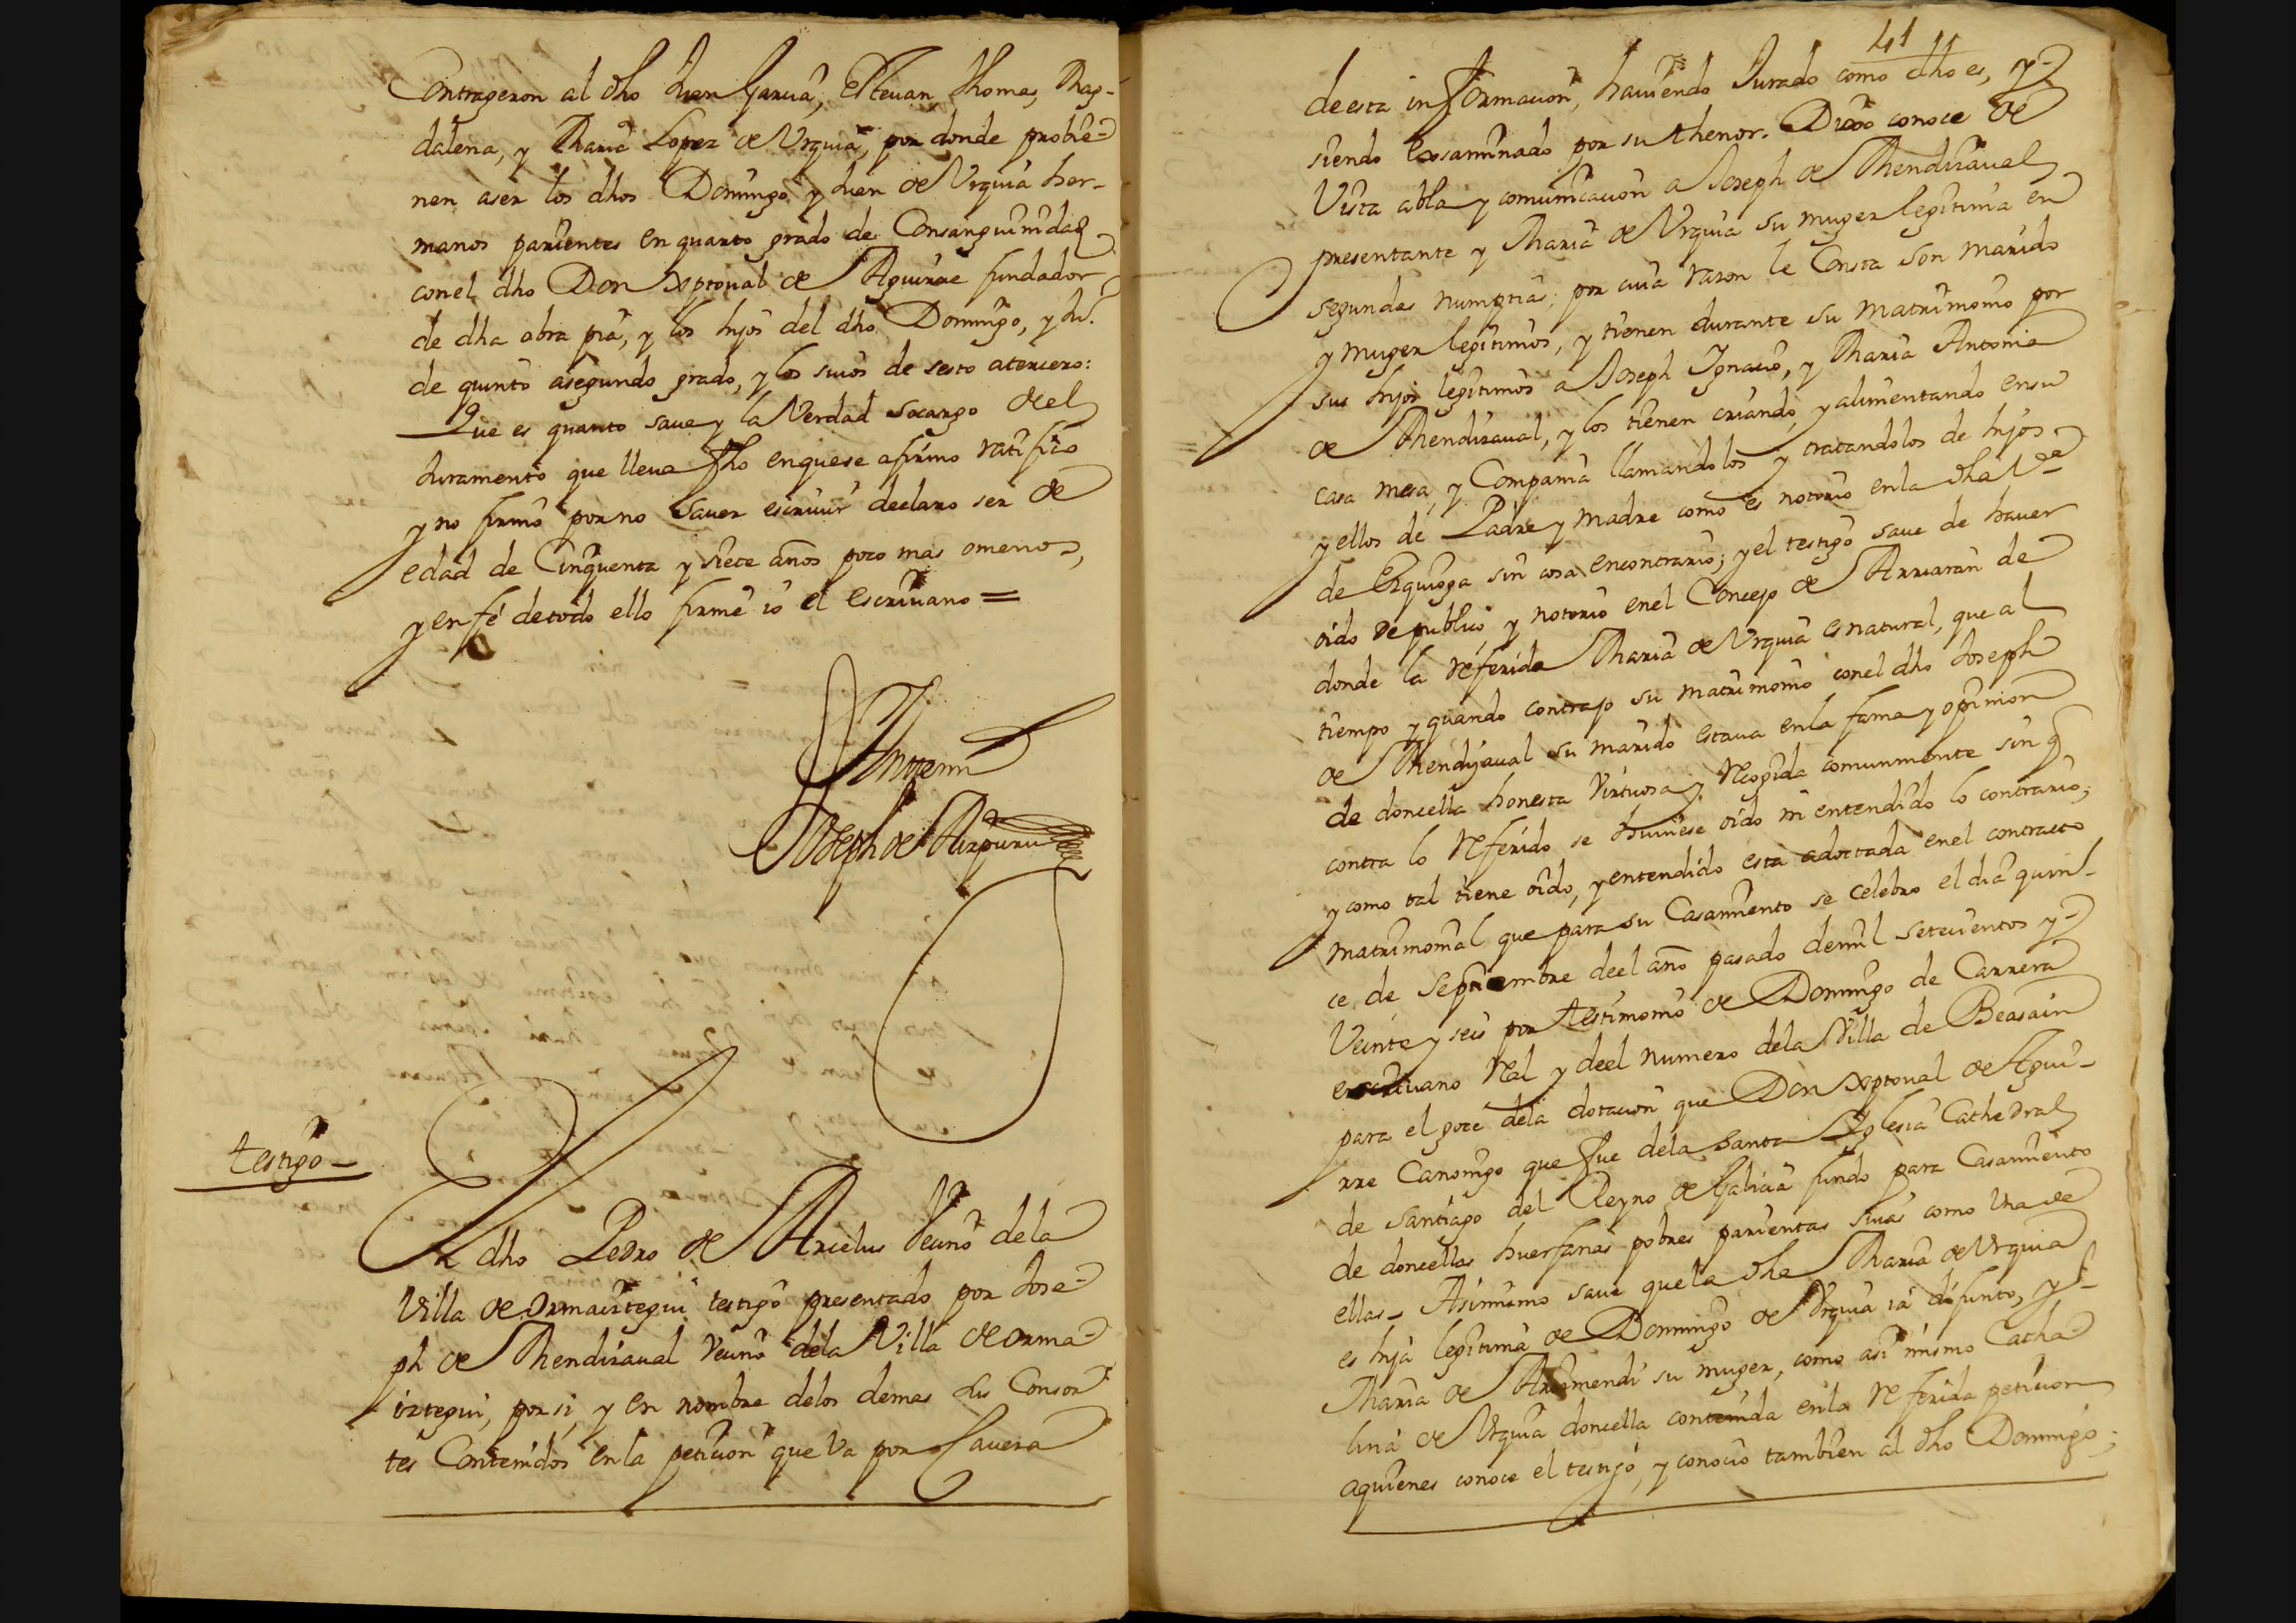 Contrageron al dho Juan Garcia, Esteuan Thomas, Mag-
dalena, y Maria Lopez de Vrquia, por donde probie-
nen aser los dhos Domingo y Juan de Vrquia her-
manos parientes en quarto grado de Consanguinidad
conel dho Don Xptoual de Aguirre fundador
de dha obra pia, y los hijos del dho Domingo, y Ju.
de quinto asegundo grado, y los suios de sesto atercero:
Que es quanto saue y la Verdad socargo del
Juramento que lleua fho enquese afirmo ratifico
y no firmo por no sauer escriuir declaro ser de
edad de Cinquenta y siete años poco mas omenos,
y en fé detodo ello firmé io el escriuano =
Antemi
Joseph de Aizpuru
testigo
El dho Pedro de Arcelus Vecino dela
Villa de Ormaiztegui testigo presentado por Jose-
ph de Mendizaual Vecino dela Villa de Orma-
iztegui, por si, y en nombre delos demas sus Consor-
tes Contenidos en la peticion que va por Cauera
41
de esta informacion, hauiendo Jurado como dho es, y
siendo exsaminado por su thenor. Dixo conoce de
Vista abla y comunicacion a Joseph de Mendizaual
presentante y Maria de Vrquia su muger legitima en
segundas numptias; por cuia razon le Consta son marido
y muger legitimos, y tienen durante su matrimonio por
sus hijos legitimos a Joseph Ygnacio, y Maria Antonia
de Mendizaual, y los tienen criando, y alimentando ensu
casa mesa, y Compania llamandolos y tratandolos de hijos
y ellos de Padre y madre como es notorio enla dha Va
de Ezquioga sin cosa encontrario; y el testigo saue de hauer
oido de publico y notorio enel Concejo de Arriaran de
donde la referida Maria de Vrquia es natural, que al
tiempo y quando contrajo su matrimonio conel dho Joseph
de Mendizaual su marido estaua enla fama y opinion
de doncella honesta Virtuosa y Recogida comunmente sin q
contra lo Referido se huuiese oido ni entendido lo contrario;
y como tal tiene oido, y entendido esta adoctada enel contracto
matrimonial que para su Casamiento se celebro el dia quin-
ce de Septiembre deel año pasado demil setecientos y
Veinte y seis por testimonio de Domingo de Carrera
escriuano Real y deel numero dela Villa de Beasain
para el goce dela dotacion que Don Xptoual de Agui-
rre Canonigo que fue dela Santa Yglesia Cathedral
de Santiago del Reyno de Galicia fundo para Casamiento
de doncellas huerfanas pobres parientas suias como Vna de
ellas. Asimismo saue que la dha Maria de Vrquia
es hija legitima de Domingo de Vrquia ia difunto, y
Maria de Arizmendi su muger, como asi mismo Catha-
lina de Vrquia doncella contenida enla Referida peticion
aquienes conoce el testigo, y conocio tambien al dho Domingo;